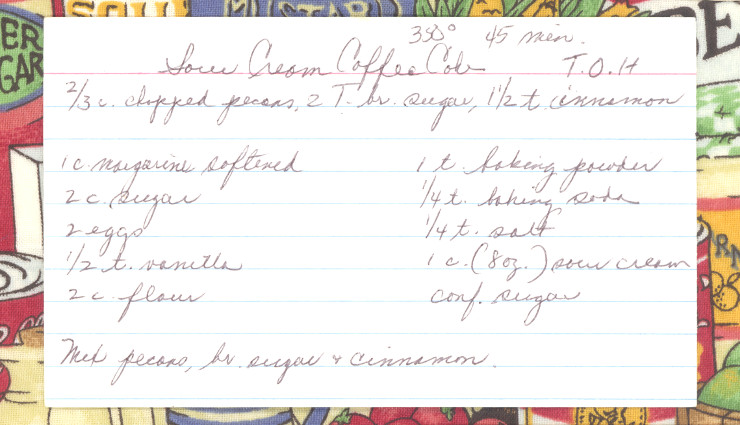 350° 45 min.
Sour Cream Coffee Cake T.O.H
2/3 c. chopped pecans, 2 T. br. sugar, 1 1/2 t cinnamon
1 c. margarine softened
2 c. sugar
2 eggs
1/2 t. vanilla
2 c. flour
1 t. baking powder
1/4 t. baking soda
1/4 t. salt
1 c. (8oz.) sour cream
conf. sugar
Mix pecans, br. sugar & cinnamon.
ER
GAR